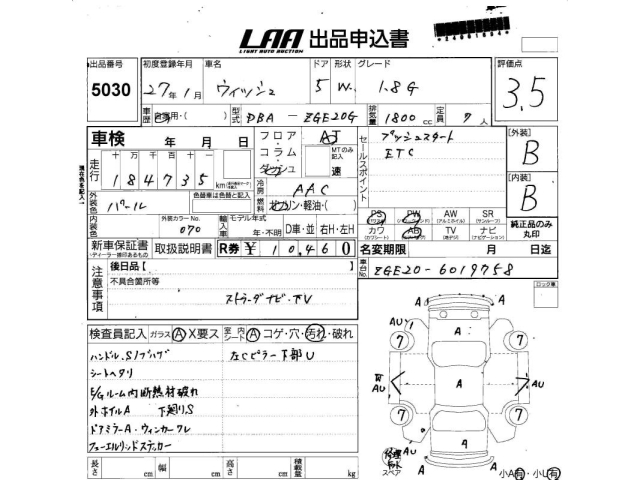 LAA 出品申込書
LIGHT AUTO AUCTION
出品番号 初度登録年月 車名 ドア 形状 グレード 評価点
5030 27年1月 ウィッシュ 5 W 1.8G 3.5
車歴 自家用・( ) 型式 DBA - ZGE20G 排気量 1800 cc 定員 7人
車検 年 月 日 フロア AT セールスポイント プッシュスタート [外装]
コラム MTのみ記入 ETC B
走行 十万 千 百 十 ダッシュ 速
184735 km 冷房 AAC [内装]
外装色 パール 色替車は色替と記入 燃料 ガソリン・軽油・( ) B
内装色 外装カラーNo. 070 輸入車 モデル年式 年・不明 D車・並 右H・左H
PS PW AW SR
(パワステ) (パワーウインド) (アルミホイル) (サンルーフ)
カワ AB TV ナビ
(カワシート) (エアバッグ) (地デジ) (ナビゲーション)
純正品のみ丸印
新車保証書 取扱説明書 R券 ¥10,460 名変期限 月 日迄
ディーラー捺印あるもの 車台No. ZGE20-6019758
注意事項 後日品[ ] ロック車
不具合箇所等
ストラーダナビ・TV
検査員記入 ガラス A X要ス 室内シート 内 A コゲ・穴・汚れ・破れ
ハンドル、S/ブハゲ 左Cピラー下部U
シートヘタリ
E/Gルーム内断熱材破れ
外ホイルA 下廻りS
ドアミラーA・ウィンカーワレ
フューエルリッドステッカー
長さ cm 幅 cm 高さ cm 積載量 kg
A
AU 7 7
A A
AU A AU
7 7
AU A
A
スペア 小A有・小U有